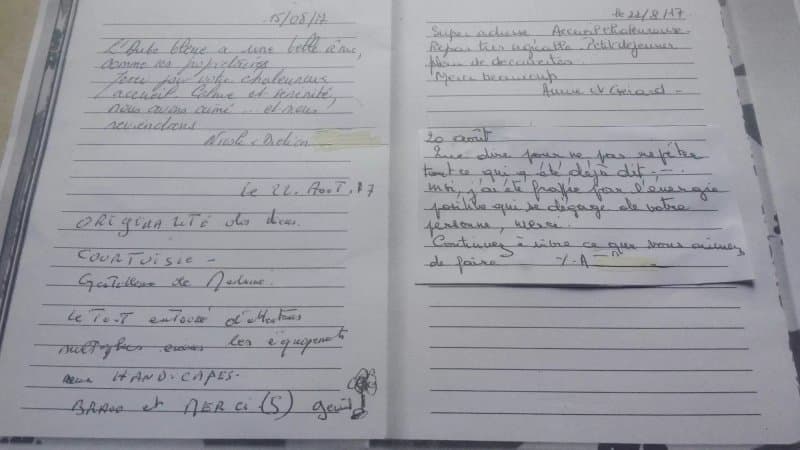 15/08/17
L'Aube bleue a une belle âme,
comme ses propriétaires
Merci pour votre chaleureux
accueil. Calme et sérénité,
nous avons aimé ... et nous
reviendrons
Nicole
Le 22. AOUT. 17
ORIGINALITÉ des lieux.
COURTOISIE -
de Madame.
Le TOUT entouré d'attentions
multiples envers les équipements
HANDICAPES-
BRAVO et MERCI (S)
le 22/8/17
Super adresse Accueil chaleureux.
Repas très agréable. Petit déjeuner
plein de découvertes.
Merci beaucoup
Annie et Gérard -
20 août
Que dire pour ne pas repéter
tout ce qui a été déjà dit, -
Moi, j'ai été frappé par l'énergie
positive qui se dégage de votre
personne, merci.
Continuez à vivre ce que vous aimez
de faire Y. A